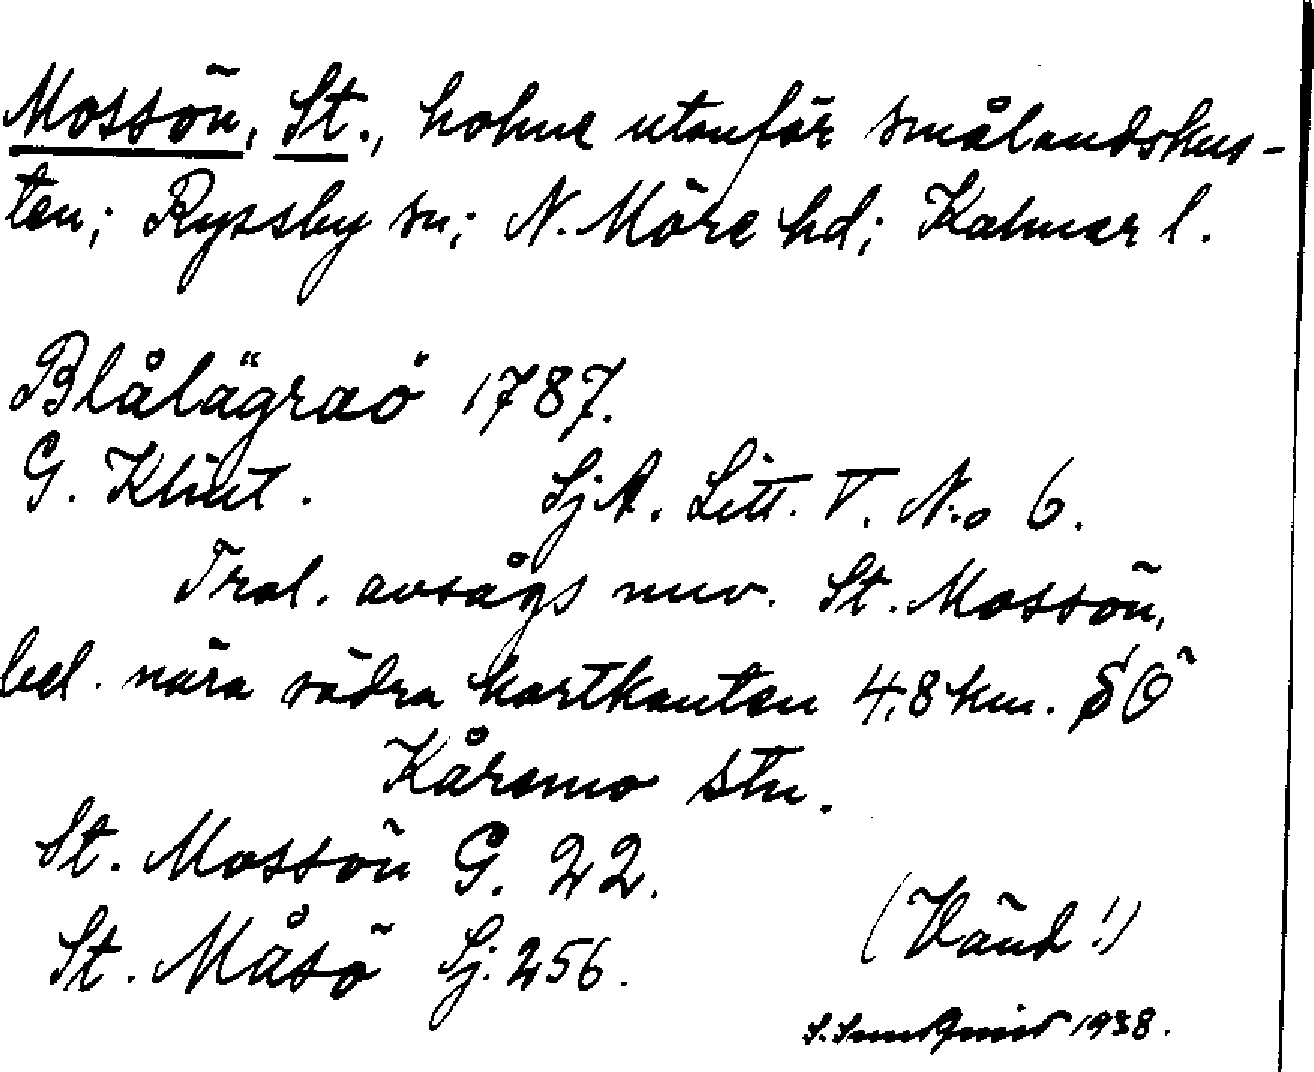 Mossön, St., holme utanför smålandskus-
ten; Ryssby sn; N. Möre hd; Kalmar l.
Blålägraö 1787.
G. Klint. SjA. Litt. V. N:o 6.
Trol. avsågs nuv. St. Mossön,
bel. nära södra kartkanten 4,8 km. SÖ
Kåremo stn.
St. Mossön G. 22.
St. Måsö Sj. 256.
(Vänd!)
S. Sundqvist 1938.